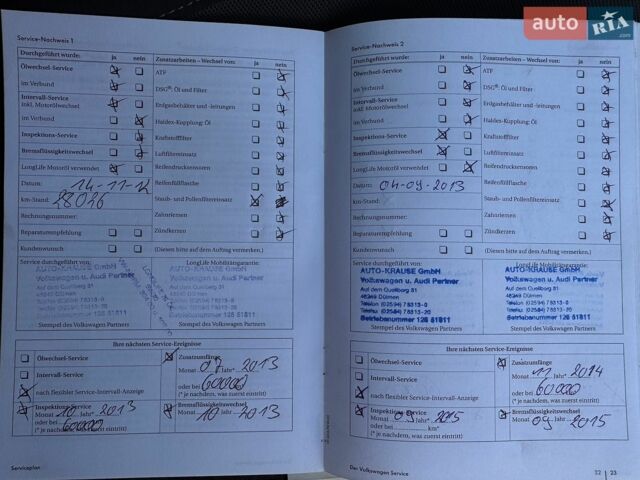 auto RIA.com
Service-Nachweis 1
Durchgeführt wurde: ja nein
Zusatzarbeiten – Wechsel von: ja nein
Ölwechsel-Service
ATF
im Verbund
DSG®: Öl und Filter
Intervall-Service
inkl. Motorölwechsel
Erdgasbehälter und -leitungen
im Verbund
Haldex-Kupplung: Öl
Inspektions-Service
Kraftstofffilter
Bremsflüssigkeitswechsel
Luftfiltereinsatz
LongLife Motoröl verwendet
Reifendrucksensoren
Datum: 14-11-12
Reifenfüllflasche
km-Stand: 28026
Staub- und Pollenfiltereinsatz
Rechnungsnummer:
Zahnriemen
Reparaturempfehlung
Zündkerzen
Kundenwunsch
(Diesen bitte auf dem Auftrag vermerken.)
Service durchgeführt von:
LongLife Mobilitätsgarantie:
AUTO-KRAUSE GmbH
Volkswagen u. Audi Partner
Auf dem Quellberg 31
Stempel des Volkswagen Partners
Stempel des Volkswagen Partners
Ihre nächsten Service-Ereignisse
Ölwechsel-Service
Zusatzumfänge
Monat 07 Jahr* 2013
Intervall-Service
oder bei 60000
nach flexibler Service-Intervall-Anzeige
(* je nachdem, was zuerst eintritt)
Inspektions-Service
Monat 10 Jahr* 2013
oder bei 60000
(* je nachdem, was zuerst eintritt)
Bremsflüssigkeitswechsel
Monat 10 Jahr 2013
Serviceplan
Service-Nachweis 2
Durchgeführt wurde: ja nein
Zusatzarbeiten – Wechsel von: ja nein
Ölwechsel-Service
ATF
im Verbund
DSG®: Öl und Filter
Intervall-Service
inkl. Motorölwechsel
Erdgasbehälter und -leitungen
im Verbund
Haldex-Kupplung: Öl
Inspektions-Service
Kraftstofffilter
Bremsflüssigkeitswechsel
Luftfiltereinsatz
LongLife Motoröl verwendet
Reifendrucksensoren
Datum: 04-09-2013
Reifenfüllflasche
km-Stand:
Staub- und Pollenfiltereinsatz
Rechnungsnummer:
Zahnriemen
Reparaturempfehlung
Zündkerzen
Kundenwunsch
(Diesen bitte auf dem Auftrag vermerken.)
Service durchgeführt von:
LongLife Mobilitätsgarantie:
AUTO-KRAUSE GmbH
Volkswagen u. Audi Partner
Auf dem Quellberg 31
48249 Dülmen
Telefon (02594) 78313-0
Betriebsnummer 126 51811
AUTO-KRAUSE GmbH
Volkswagen u. Audi Partner
Auf dem Quellberg 31
48249 Dülmen
Telefon (02594) 78313-0
Betriebsnummer 126 51811
Stempel des Volkswagen Partners
Stempel des Volkswagen Partners
Ihre nächsten Service-Ereignisse
Ölwechsel-Service
Zusatzumfänge
Monat 11 Jahr* 2014
Intervall-Service
oder bei 60000
nach flexibler Service-Intervall-Anzeige
(* je nachdem, was zuerst eintritt)
Inspektions-Service
Monat 09 Jahr* 2015
oder bei km*
(* je nachdem, was zuerst eintritt)
Bremsflüssigkeitswechsel
Monat 09 Jahr 2015
Der Volkswagen Service
23